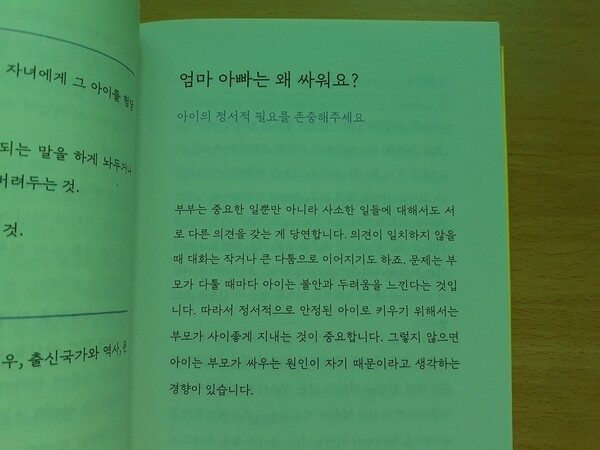 자녀에게 그 아이를 험담
되는 말을 하게 놔두거나
버려두는 것.
것.
우, 출신국가와 역사,
엄마 아빠는 왜 싸워요?
아이의 정서적 필요를 존중해주세요
부부는 중요한 일뿐만 아니라 사소한 일들에 대해서도 서
로 다른 의견을 갖는 게 당연합니다. 의견이 일치하지 않을
때 대화는 작거나 큰 다툼으로 이어지기도 하죠. 문제는 부
모가 다툴 때마다 아이는 불안과 두려움을 느낀다는 것입
니다. 따라서 정서적으로 안정된 아이로 키우기 위해서는
부모가 사이좋게 지내는 것이 중요합니다. 그렇지 않으면
아이는 부모가 싸우는 원인이 자기 때문이라고 생각하는
경향이 있습니다.